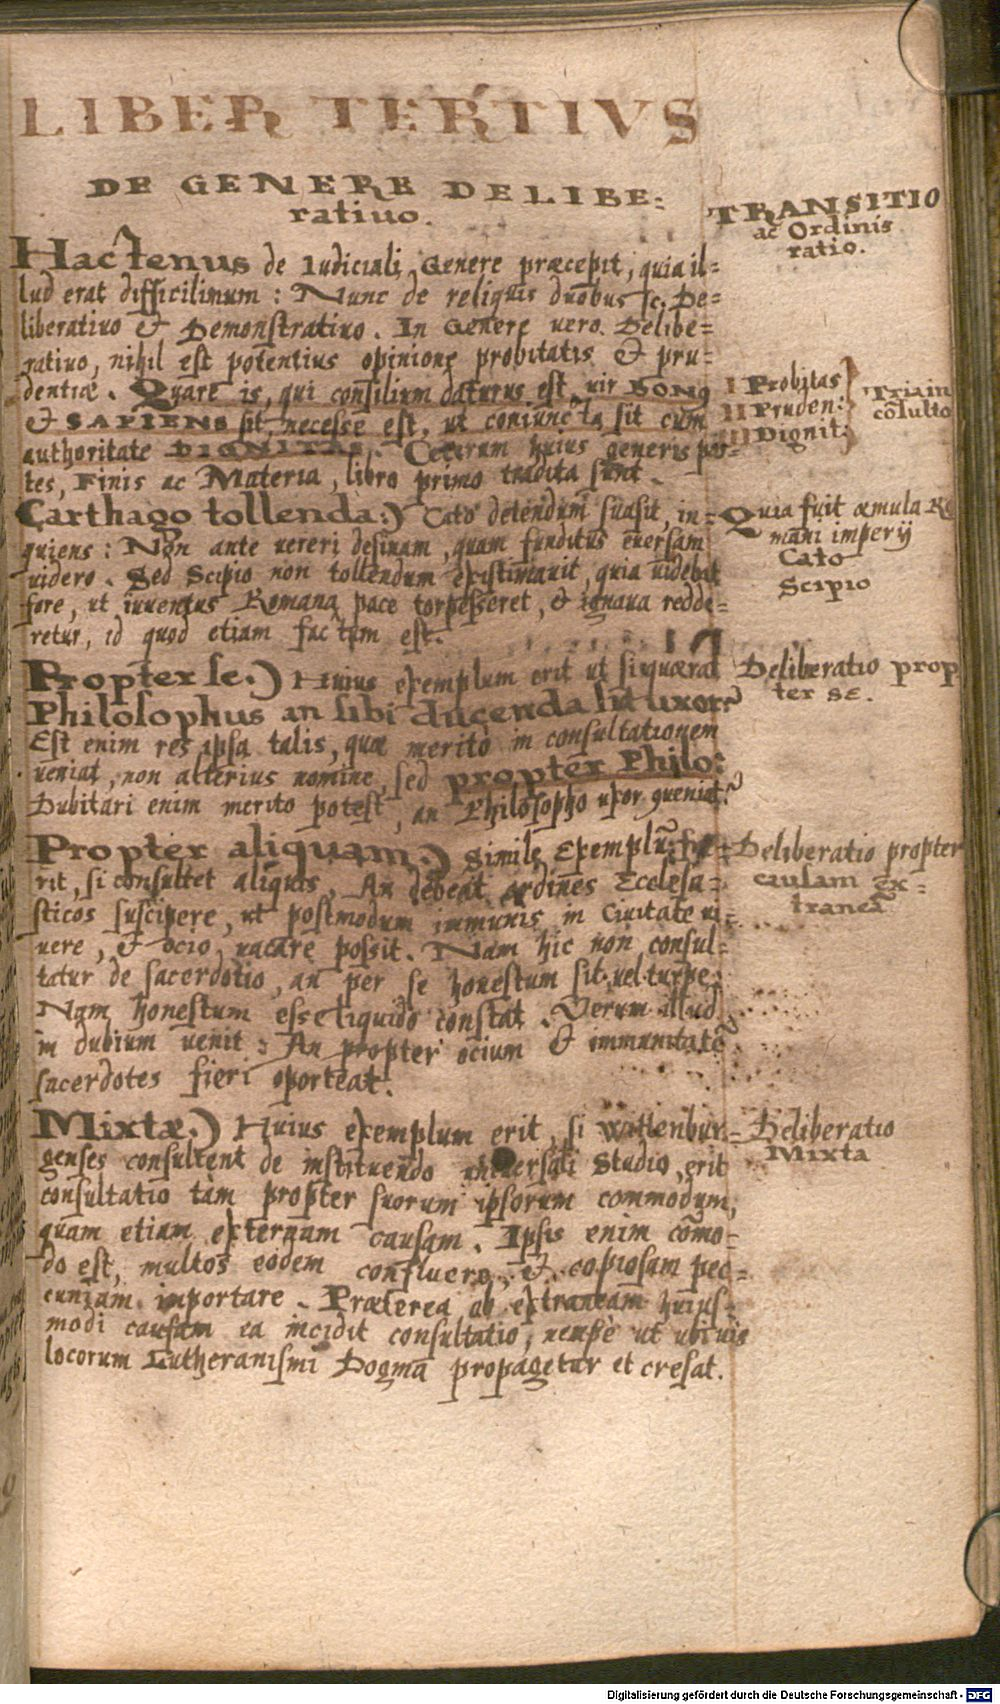 LIBER TERTIVS
DE GENERE DELIBE:
ratiuo.
TRANSITIO
ac Ordinis
ratio.
Hactenus de Iudiciali Genere præcepit, quia il=
lud erat difficilimum: Nunc de reliquis duobus sc. De=
liberatiuo & Demonstratiuo. In Genere vero Delibe=
ratiuo, nihil est potentius opinione probitatis & pru=
dentiæ. Quare is, qui consilium daturus est, uir BONꝰ
& SAPIENS sit, necesse est, ut coniuncta sit cum
authoritate DIGNITAS. Ceterum huius generis par=
tes, Finis ac Materia, libro primo tradita sunt.
I Probitas
II Pruden:
III Dignit:
Tria in
cōsulto
Carthago tollenda.) Cato delendum suasit, in=
quiens: Non ante uereri desinam, quam funditus euersam
uidero. Sed Scipio non tollendum existimauit, quia uidebat
fore, ut iuuentus Romana pace torpesseret, & ignaua redde=
retur, id quod etiam factum est.
Quia fuit æmula Ro
mani imperij
Cato
Scipio
Propter se.) Huius exemplum erit ut si quærat
Philosophus an sibi ducenda sit uxor?
Est enim res ipsa talis, quæ merito in consultationem
ueniat, non alterius nomine, sed propter Philo:
Dubitari enim merito potest, an Philosopho uxor ꝯueniat?
Deliberatio prop
ter se.
Propter aliquam.) Simile Exemplū fue=
rit, si consultet aliquis, An debeat ordines Ecclesia=
sticos suscipere, ut postmodum immunis in Ciuitate ui=
uere, & ocio uacare possit. Nam hic non consul=
tatur de sacerdotio, an per se honestum sit uel turpe:
Nam honestum esse liquido constat. Verum illud
in dubium uenit: An propter ocium & immunitatē
sacerdotes fieri oporteat.
Deliberatio propter
causam ex=
traneā
Mixtæ.) Huius exemplum erit, si Wittenbur=
genses consultent de instituendo uniuersali Studio, erit
consultatio tam propter suorum ipsorum commodum,
quam etiam externam causam. Ipsis enim cōmo=
do est, multos eodem confluere, & copiosam pec=
cuniam importare. Præterea ab extraneam huius=
modi causam ea incidit consultatio, nempe ut ubiuis
locorum Lutheranismi Dogma propagetur et cresat.
Deliberatio
Mixta
Digitalisierung gefördert durch die Deutsche Forschungsgemeinschaft - DFG